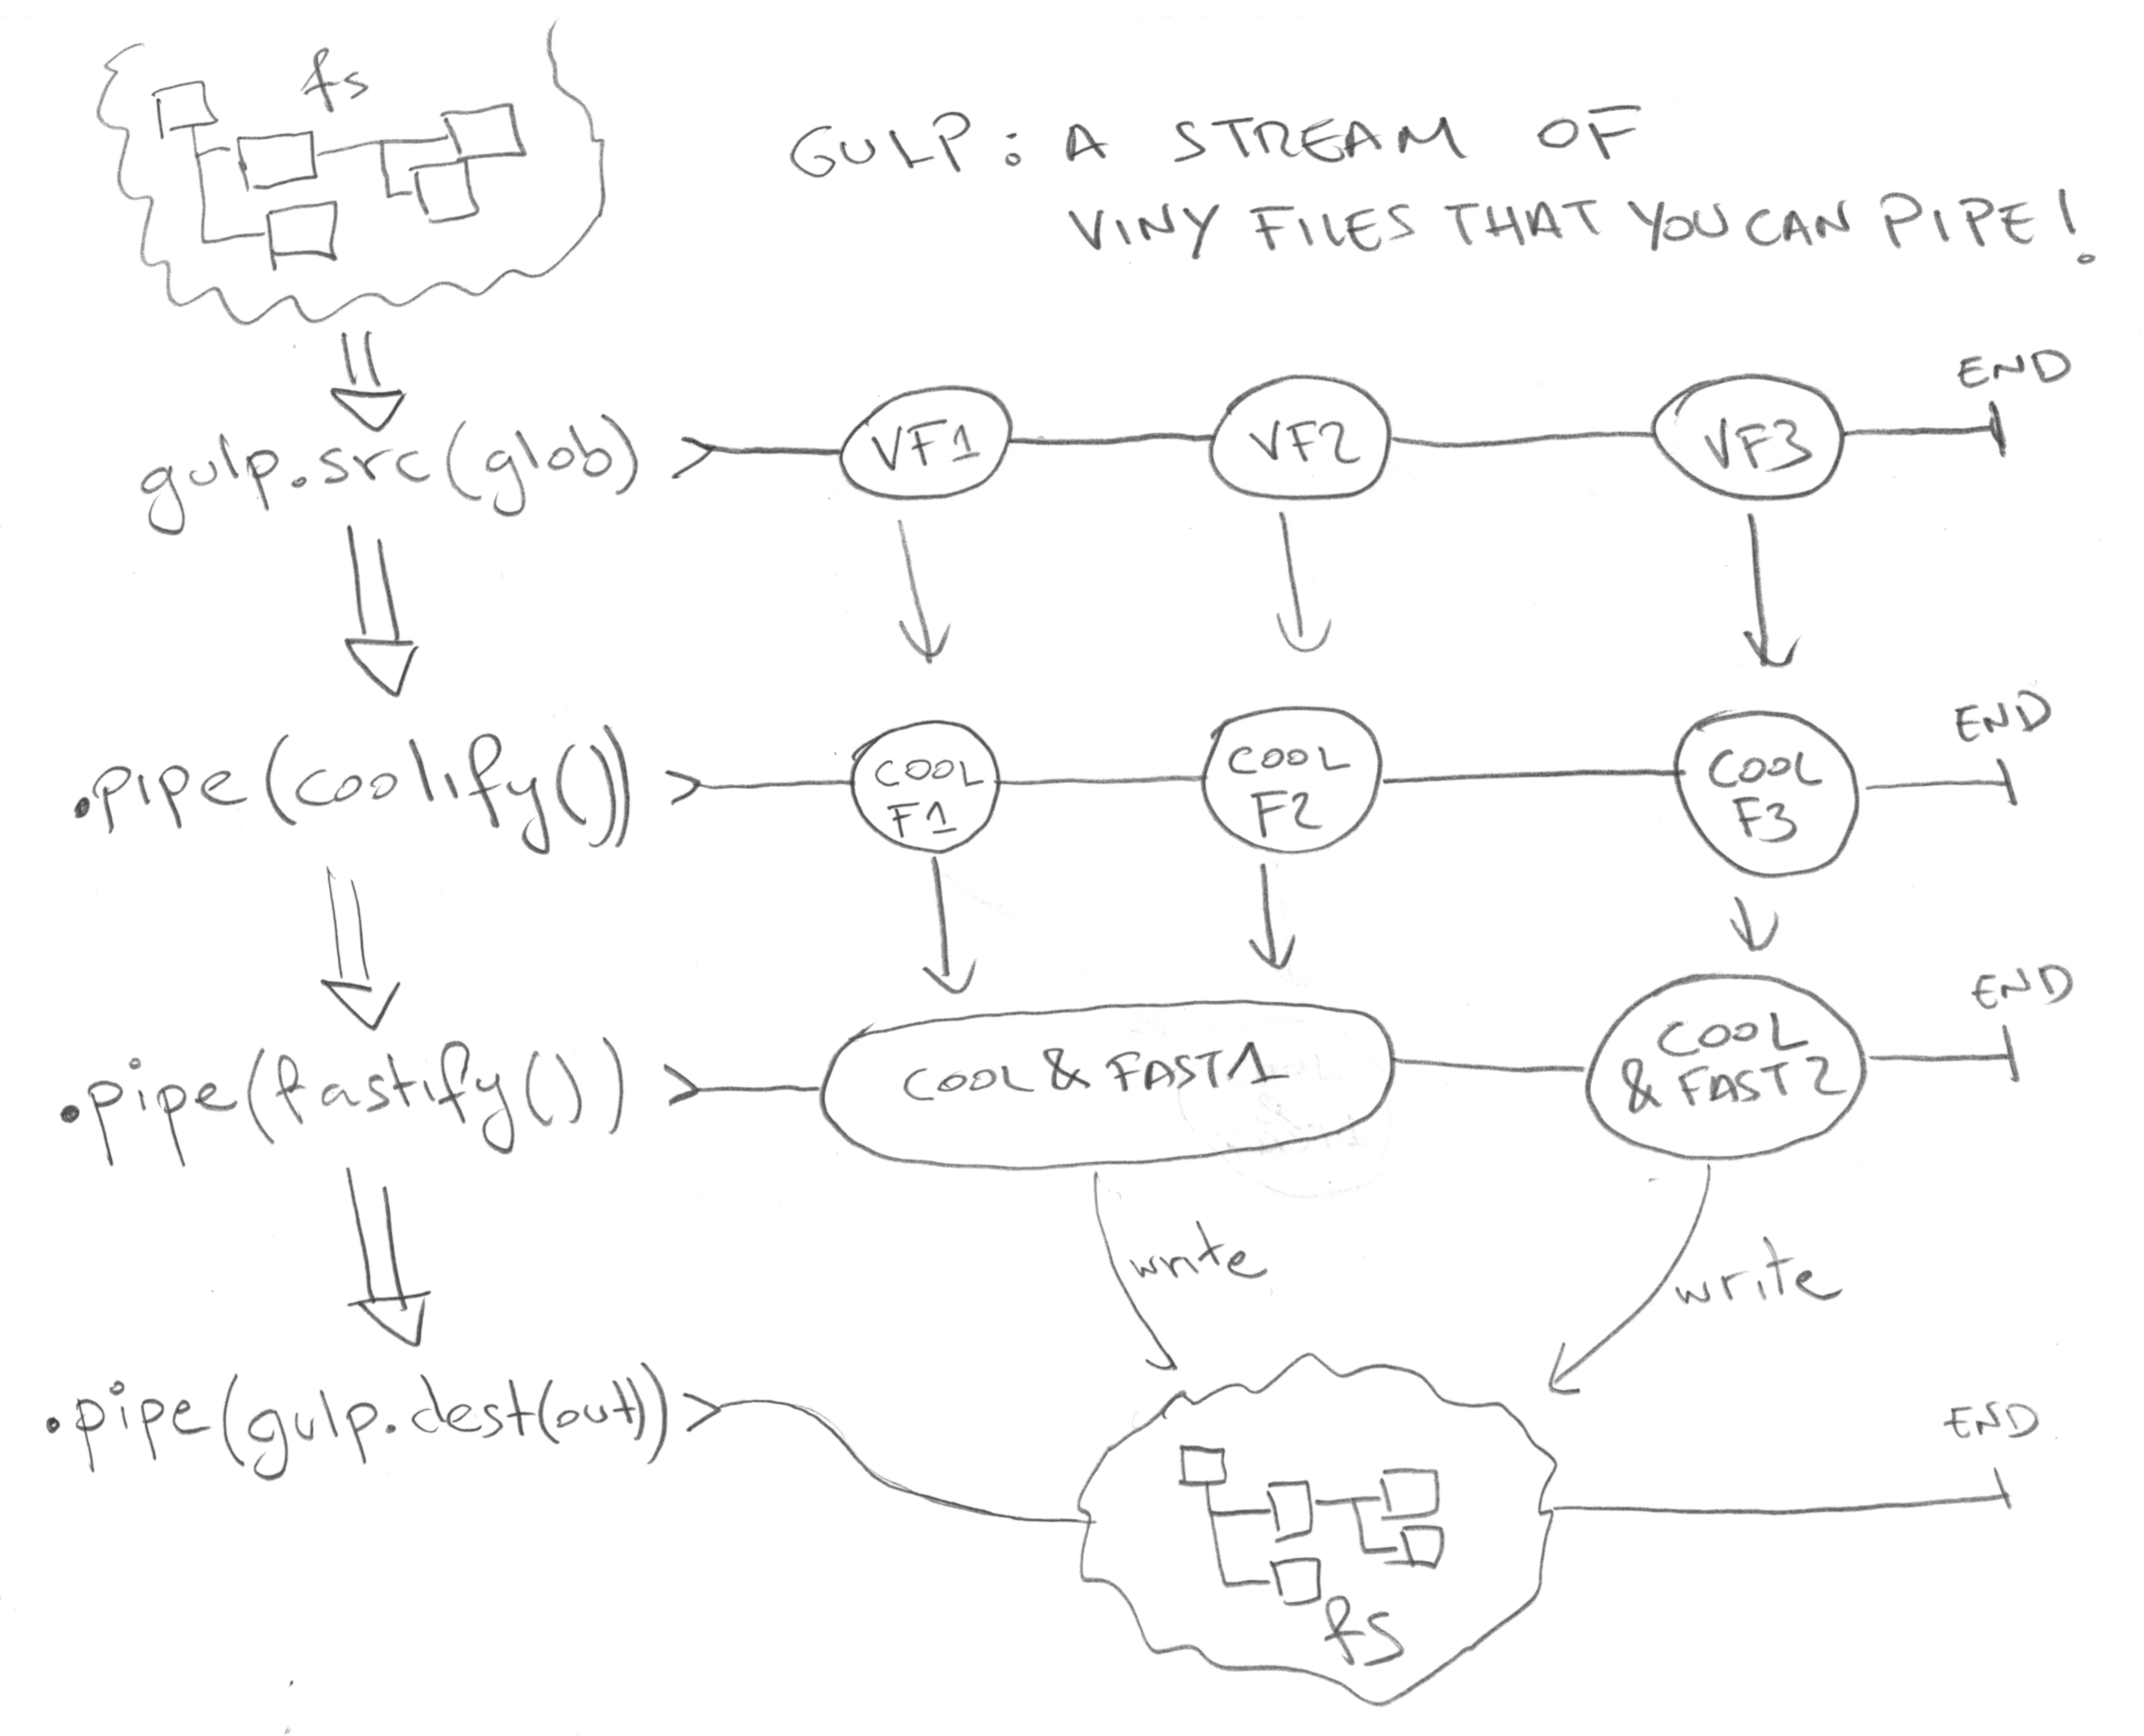 fs
GULP: A STREAM OF
VINY FILES THAT YOU CAN PIPE!
END
gulp.src(glob) > VF1 VF2 VF3
END
.pipe(coolify()) > COOL F1 COOL F2 COOL F3
END
.pipe(fastify()) > COOL & FAST1 COOL & FAST2
write
write
.pipe(gulp.dest(out)) >
END
fs